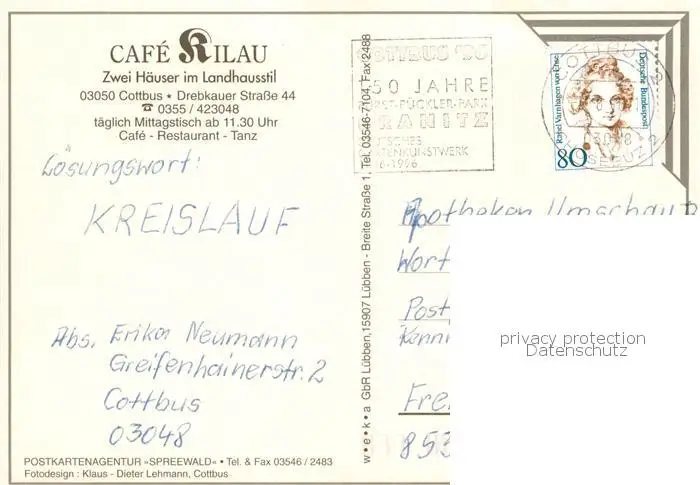 CAFÉ KILAU
Zwei Häuser im Landhausstil
03050 Cottbus ★ Drebkauer Straße 44
☎ 0355 / 423048
täglich Mittagstisch ab 11.30 Uhr
Café - Restaurant - Tanz
Lösungswort:
KREISLAUF
Abs. Erika Neumann
Greifenhainerstr. 2
Cottbus
03048
POSTKARTENAGENTUR »SPREEWALD« • Tel. & Fax 03546 / 2483
Fotodesign : Klaus - Dieter Lehmann, Cottbus
w • e • k • a GbR Lübben, 15907 Lübben - Breite Straße 1, Tel. 03546-7104, Fax 2488
COTTBUS
50 JAHRE
ST-PÜCKLER-PARK
RANITZ
TENKUNSTWERK
6-1996
Rahel Varnhagen von Ense
Deutsche Bundespost
80
COTTBUS
Apotheken Umschau
Wort
Post
Kenn
Fre
853
privacy protection
Datenschutz